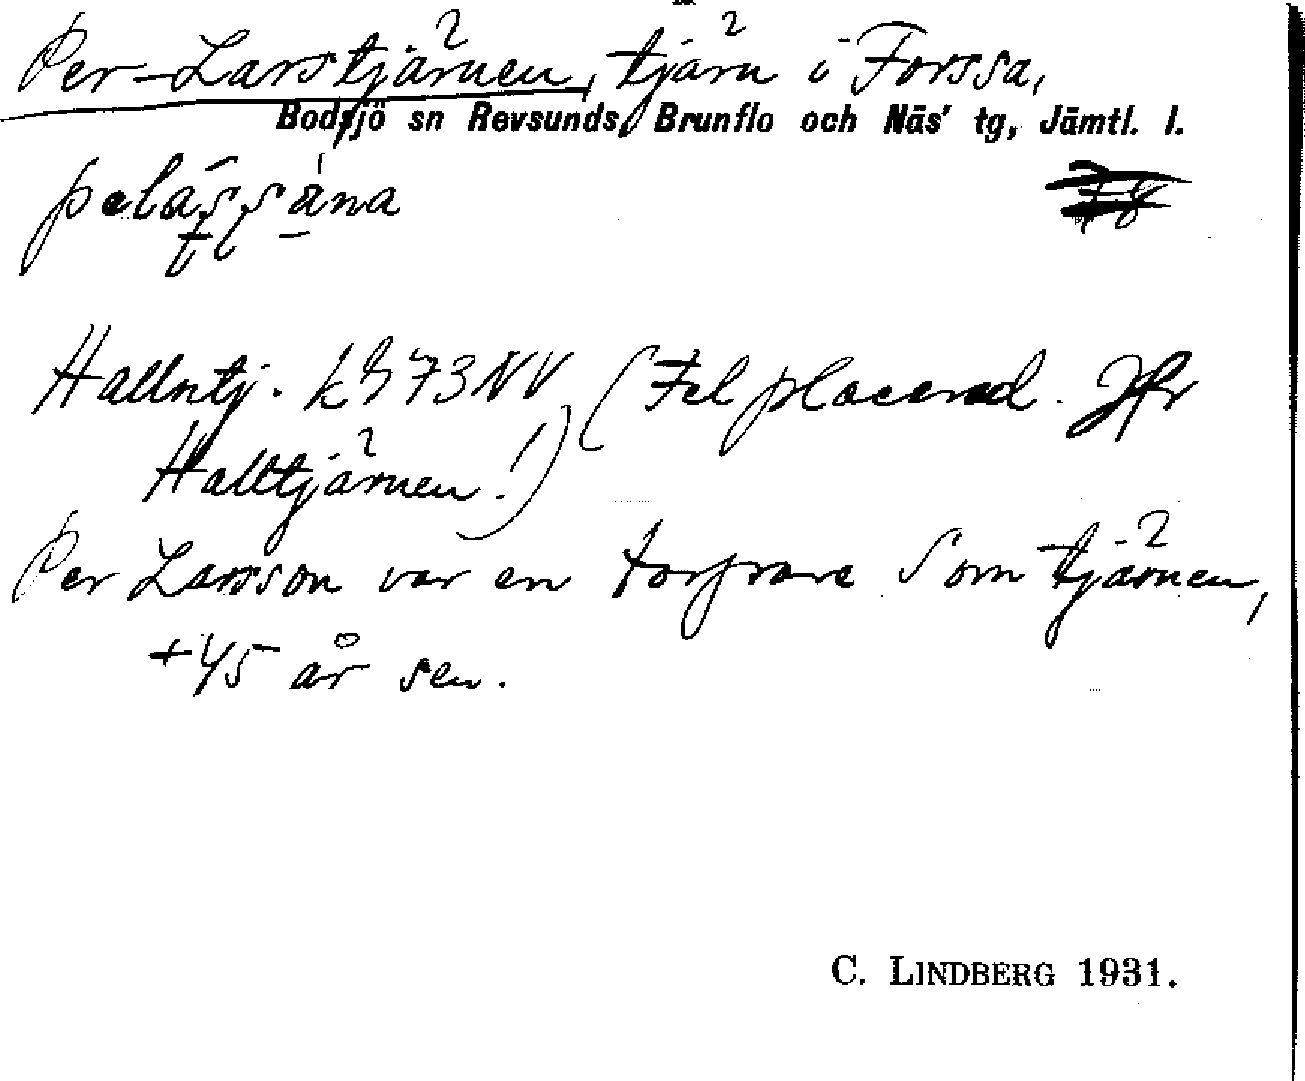 Per-Larstjärnen, tjärn i Forssa,
Bodsjö sn Revsunds, Brunflo och Näs' tg, Jämtl. l.
Hallntj. 73 NV (Felplacerad. Jfr
Halltjärnen!)
Per Larsson var en torpare som tjärnen,
±45 år sen.
C. LINDBERG 1931.